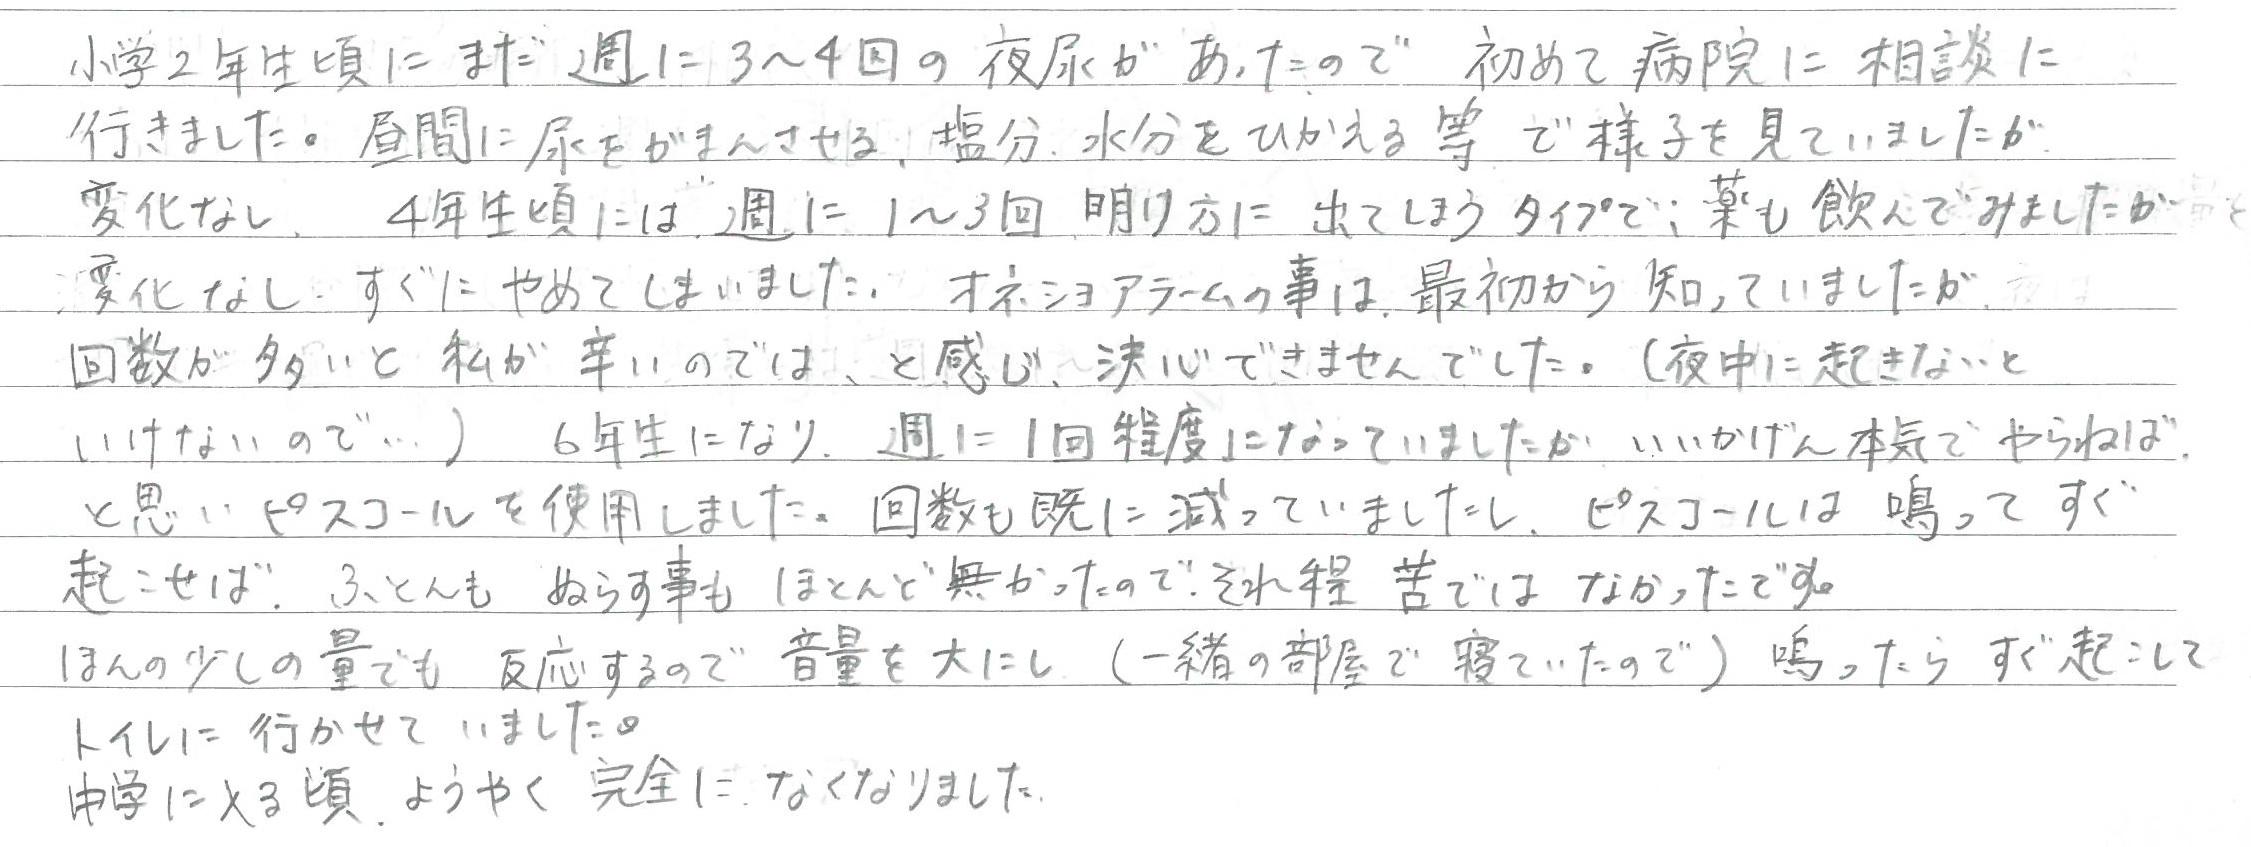 小学2年生頃にまだ週に3～4回の夜尿があったので 初めて病院に相談に
行きました。昼間に尿をがまんさせる、塩分、水分をひかえる等で様子を見ていましたが
変化なし、 4年生頃には、週に1～3回、明け方に出てしまうタイプで、薬も飲んでみましたが
変化なし、すぐにやめてしまいました。オネショアラームの事は、最初から知っていましたが、
回数が多いと私が辛いのでは、と感じ、決心できませんでした。(夜中に起きないと
いけないので…) 6年生になり、週に1回程度になっていましたが、いいかげん本気でやらねば、
と思いピスコールを使用しました。回数も既に減っていましたし、ピスコールは鳴ってすぐ
起こせば、ふとんもぬらす事もほとんど無かったので、それ程苦ではなかったです。
ほんの少しの量でも反応するので音量を大にし、(一緒の部屋で寝ていたので)鳴ったらすぐ起こして
トイレに行かせていました。
中学に入る頃、ようやく完全になくなりました。